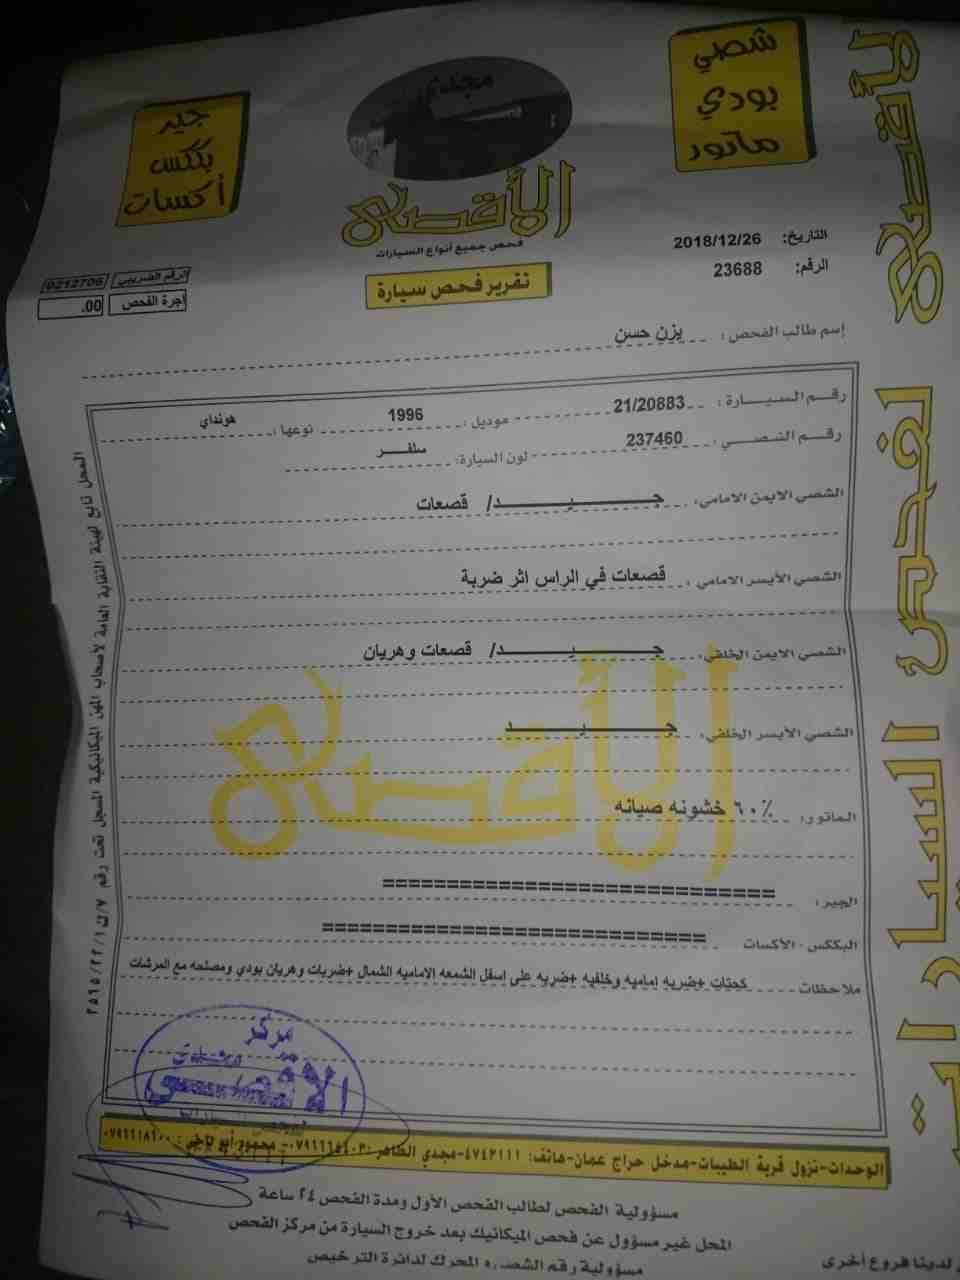 شصي
بودي
ماتور
مجدي
جير
بككس
أكسات
الأقصى
فحص جميع أنواع السيارات
تقرير فحص سيارة
التاريخ: 2018/12/26
الرقم: 23688
الرقم الضريبي 0212706
اجرة الفحص 00.
إسم طالب الفحص: يزن حسن
رقم السيارة: 21/20883 موديل: 1996 نوعها: هونداي
رقم الشصي: 237460 لون السيارة: سلفر
الشصي الايمن الامامي: جيد/ قصعات
الشصي الأيسر الامامي: قصعات في الراس اثر ضربة
الشصي الايمن الخلفي: جيد/ قصعات وهريان
الشصي الأيسر الخلفي: جيد
الأقصى
الماتور: ٦٠٪ خشونه صيانه
الجير: ============================
البككس - الأكسات ============================
ملاحظات كحتات +ضربه اماميه وخلفيه +ضربه على اسفل الشمعه الاماميه الشمال +ضربات وهريان بودي ومصلحه مع المرشات
مركز
مجدي
الأقصى
الوحدات-نزول قرية الطيبات-مدخل حراج عمان-هاتف: ٤٧٤٢١١١-مجدي الظاهر
مسؤولية الفحص لطالب الفحص الأول ومدة الفحص ٢٤ ساعة
المحل غير مسؤول عن فحص الميكانيك بعد خروج السيارة من مركز الفحص
مسؤولية رقم المحرك لدائرة الترخيص
لدينا فروع أخرى
المحل تابع لهيئة النقابة العامة لأصحاب المهن الميكانيكية المسجل تحت رقم
الأقصى لفحص السيارات